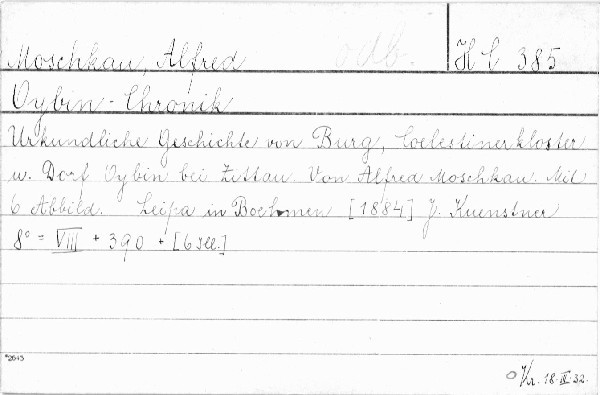 Moschkau, Alfred odb. H C 385
Oybin - Chronik
Urkundliche Geschichte von Burg, Coelestinerkloster
u. Dorf Oybin bei Zittau. Von Alfred Moschkau. Mit
6 Abbild. Leipa in Boehmen [1884] J. Kuenstner
8° = VIII + 390 + [6 Ill.]
*2643
Kr. 18·III·32.